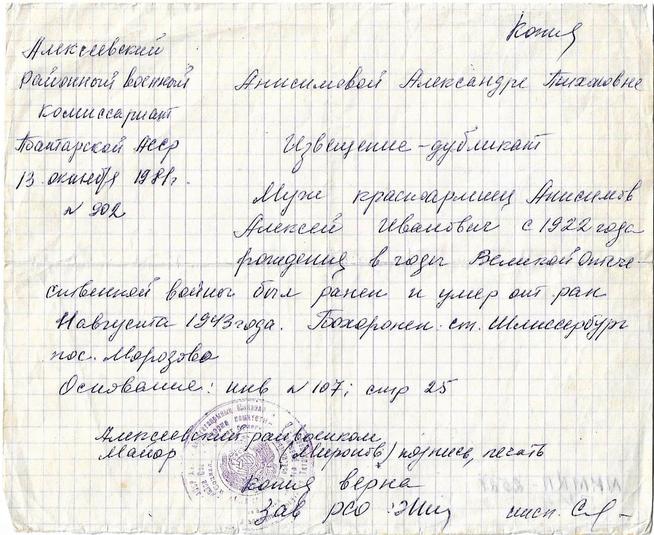 Копия
Алексеевский
районный военный
комиссариат
Татарской АССР
13 октября 1981г.
N 902
Анисимовой Александре Тихоновне
Извещение-дубликат
Муж красноармиец Анисимов
Алексей Иванович с 1922 года
рождения в годы Великой Отече-
ственной войны был ранен и умер от ран
11 августа 1943 года. Похоронен: ст. Шлиссербург
пос. Морозово
Основание: инв N 107; стр 25
Алексеевский райвоенком
Майор (Миронов) подпись, печать
копия верна
Зав РСО: